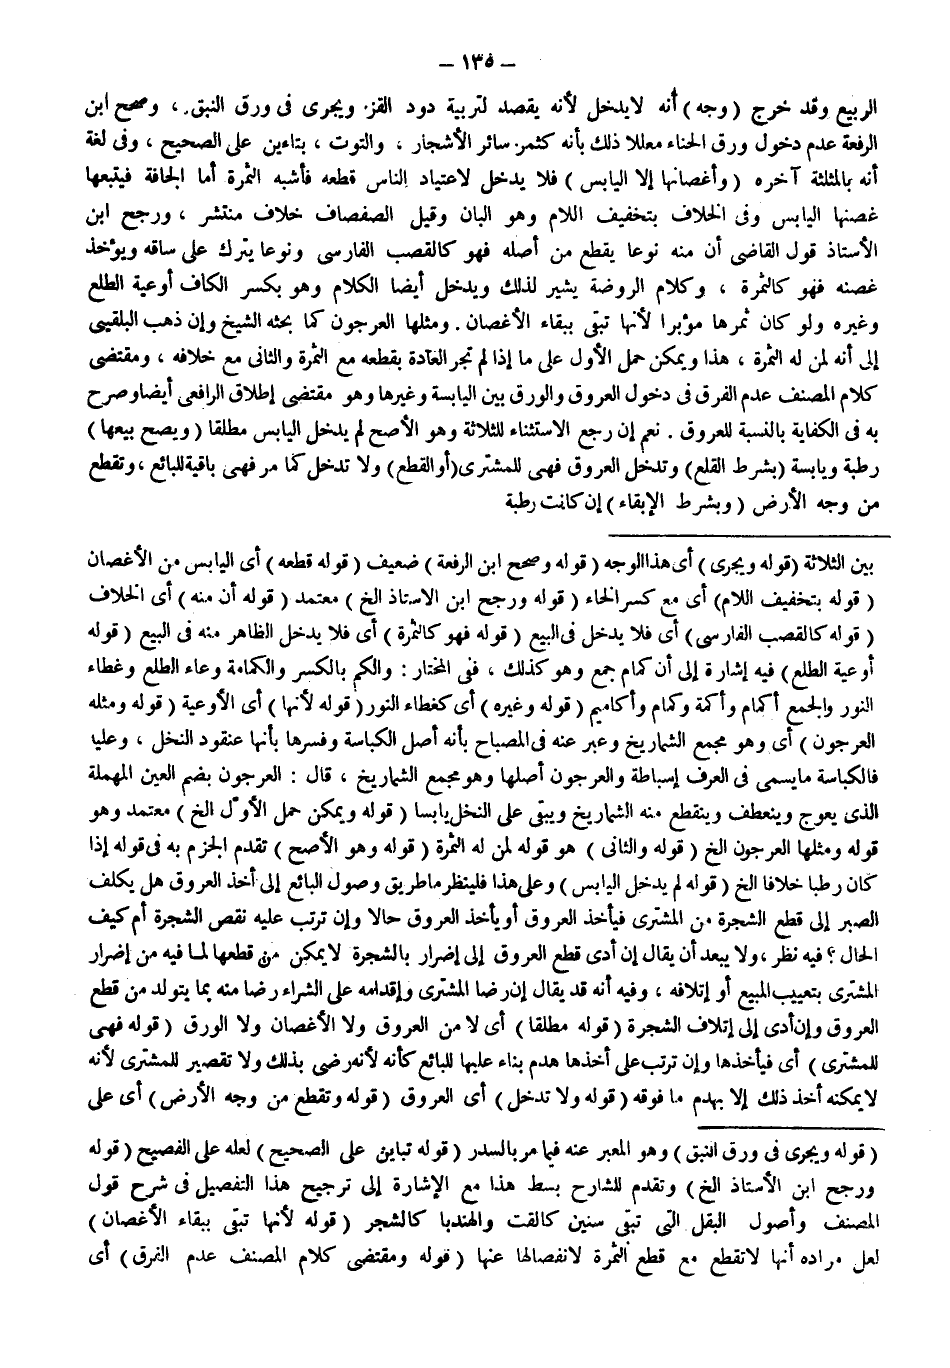 – ١٣٥ –
الربيع وقد خرج ( وجه ) أنه لايدخل لأنه يقصد لتربية دود القز. ويجرى فى ورق النبق. ، وصحح ابن
الرفعة عدم دخول ورق الحناء معللا ذلك بأنه كثمر. سائر الأشجار ، والتوت ، بتاءين على الصحيح ، وفى لغة
أنه بالمثلثة آخره ( وأغصانها إلا اليابس ) فلا يدخل لاعتياد الناس قطعه فأشبه الثمرة أما الجافة فيتبعها
غصنها اليابس وفى الخلاف بتخفيف اللام وهو البان وقيل الصفصاف خلاف منتشر ، ورجح ابن
الأستاذ قول القاضى أن منه نوعا يقطع من أصله فهو كالقصب الفارسى ونوعا يترك على ساقه ويؤخذ
غصنه فهو كالثمرة ، وكلام الروضة يشير لذلك ويدخل أيضا الكلام وهو بكسر الكاف أوعية الطلع
وغيره ولو كان ثمرها مؤبرا لأنها تبقى ببقاء الأغصان . ومثلها العرجون كما بحثه الشيخ وإن ذهب البلقينى
إلى أنه لمن له الثمرة ، هذا ويمكن حمل الأول على ما إذا لم تجر العادة بقطعه مع الثمرة والثانى مع خلافه ، ومقتضى
كلام المصنف عدم الفرق فى دخول العروق والورق بين اليابسة وغيرها وهو مقتضى إطلاق الرافعى أيضا وصرح
به فى الكفاية بالنسبة للعروق . نعم إن رجع الاستثناء للثلاثة وهو الأصح لم يدخل اليابس مطلقا ( ويصح بيعها )
رطبة ويابسة ( بشرط القلع ) وتدخل العروق فهى للمشترى ( أو القطع ) ولا تدخل كما مر فهى باقية للبائع ، وتقطع
من وجه الأرض ( وبشرط الإبقاء ) إن كانت رطبة
بين الثلاثة ( قوله ويجرى ) أى هذا الوجه ( قوله وصحح ابن الرفعة ) ضعيف ( قوله قطعه ) أى اليابس من الأغصان
( قوله بتخفيف اللام ) أى مع كسر الخاء ( قوله ورجح ابن الاستاذ الخ ) معتمد ( قوله أن منه ) أى الخلاف
( قوله كالقصب الفارسى ) أى فلا يدخل فى البيع ( قوله فهو كالثمرة ) أى فلا يدخل الظاهر منه فى البيع ( قوله
أوعية الطلع ) فيه إشارة إلى أن كمام جمع وهو كذلك ، ففى المختار : والكم بالكسر والكمامة وعاء الطلع وغطاء
النور والجمع أكمام وأكمة وكمام وأكاميم ( قوله وغيره ) أى كغطاء النور ( قوله لأنها ) أى الأوعية ( قوله ومثله
العرجون ) أى وهو مجمع الشماريخ وعبر عنه فى المصباح بأنه أصل الكباسة وفسرها بأنها عنقود النخل ، وعليا
فالكباسة مايسمى فى العرف إسباطة والعرجون أصلها وهو مجمع الشماريخ ، قال : العرجون بضم العين المهملة
الذى يعوج وينعطف وينقطع منه الشماريخ ويبقى على النخل يابسا ( قوله ويمكن حمل الأوّل الخ ) معتمد وهو
قوله ومثلها العرجون الخ ( قوله والثانى ) هو قوله لمن له الثمرة ( قوله وهو الأصح ) تقدم الجزم به فى قوله إذا
كان رطبا خلافا الخ ( قوله لم يدخل اليابس ) وعلى هذا فلينظر ماطريق وصول البائع إلى أخذ العروق هل يكلف
الصبر إلى قطع الشجرة من المشترى فيأخذ العروق أو يأخذ العروق حالا وإن ترتب عليه نقص الشجرة أم كيف
الحال ؟ فيه نظر ، ولا يبعد أن يقال إن أدى قطع العروق إلى إضرار بالشجرة لايمكن من قطعها لما فيه من إضرار
المشترى بتعييب المبيع أو إتلافه ، وفيه أنه قد يقال إن رضا المشترى وإقدامه على الشراء رضا منه بما يتولد من قطع
العروق وإن أدى إلى إتلاف الشجرة ( قوله مطلقا ) أى لا من العروق ولا الأغصان ولا الورق ( قوله فهى
للمشترى ) أى فيأخذها وإن ترتب على أخذها هدم بناء عليها للبائع كأنه لأنه رضى بذلك ولا تقصير للمشترى لأنه
لايمكنه أخذ ذلك إلا بهدم ما فوقه ( قوله ولا تدخل ) أى العروق ( قوله وتقطع من وجه الأرض ) أى على
( قوله ويجرى فى ورق النبق ) وهو المعبر عنه فيا مر بالسدر ( قوله تباين على الصحيح ) لعله على الفصيح ( قوله
ورجح ابن الأستاذ الخ ) وتقدم للشارح بسط هذا مع الإشارة إلى ترجيح هذا التفصيل فى شرح قول
المصنف وأصول البقل التى تبقى سنين كالقت والهندبا كالشجر ( قوله لأنها تبقى ببقاء الأغصان )
لعل مراده أنها لاتقطع مع قطع الثمرة لانفصالها عنها ( قوله ومقتضى كلام المصنف عدم الفرق ) أى